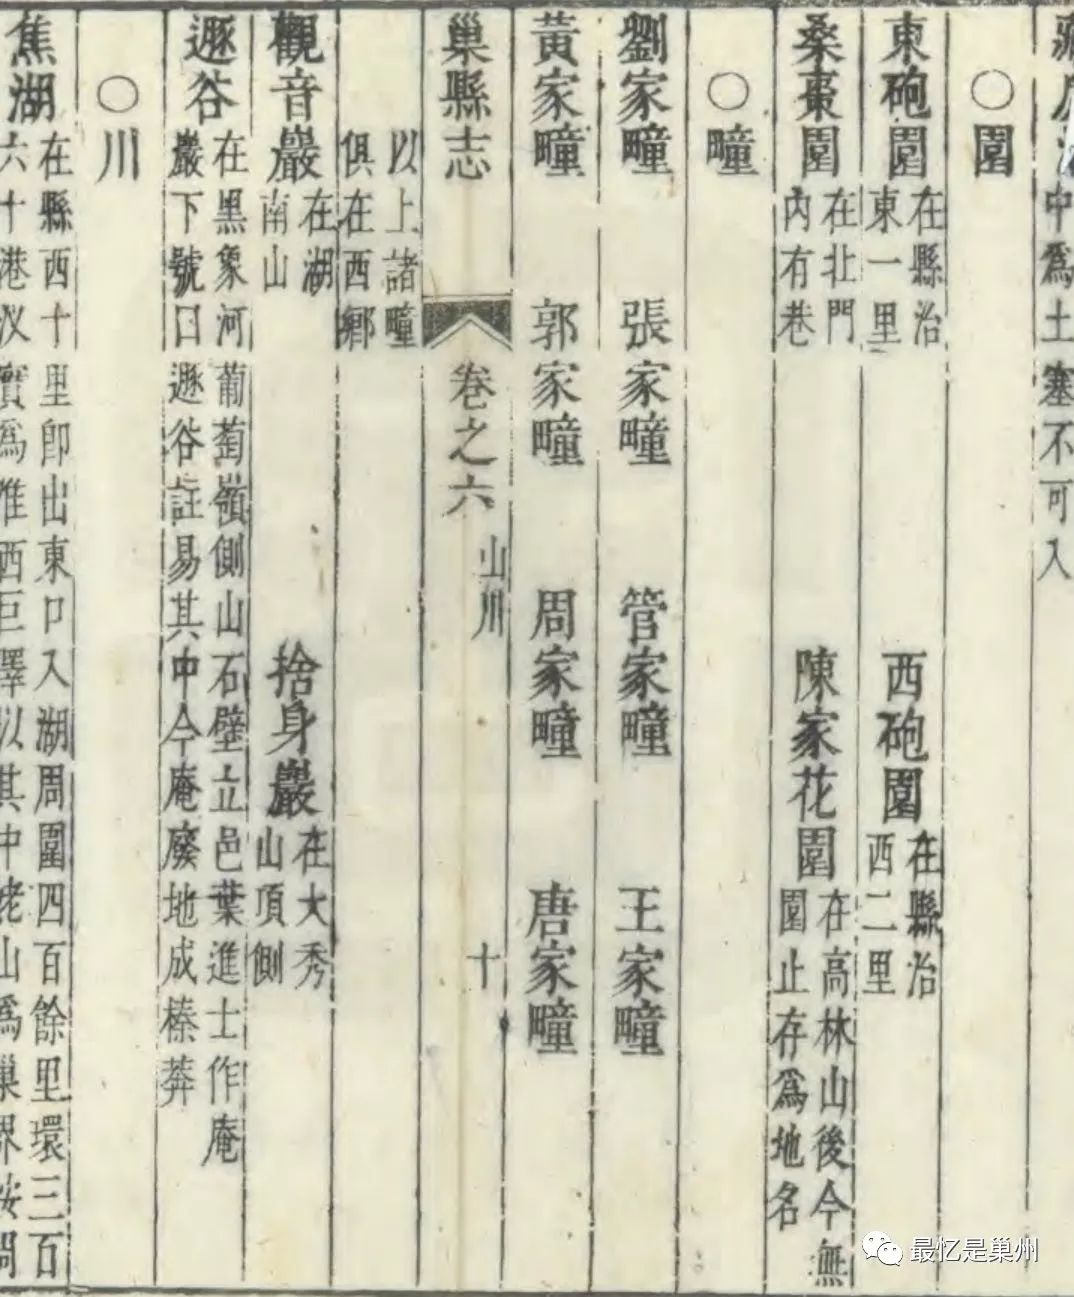 中爲土塞不可入
○園
東砲園 在縣治東一里 西砲園 在縣治西二里
桑棗園 在北門內有巷 陳家花園 在高林山後今無園止存爲地名
○疃
劉家疃 張家疃 管家疃 王家疃
黃家疃 郭家疃 周家疃 唐家疃
巢縣志 卷之六 山川 十
以上諸疃俱在西鄉
觀音巖 在湖南山 捨身巖 在大秀山項側
遯谷 在黑象河葡萄嶺側山石壁立邑葉進士作庵巖下號曰遯谷註易其中今庵廢地成榛莽
○川
焦湖 在縣西十里卽出東口入湖周圍四百餘里環三百六十港汊實爲淮西巨澤以其中姥山爲巢界按
最忆是巢州